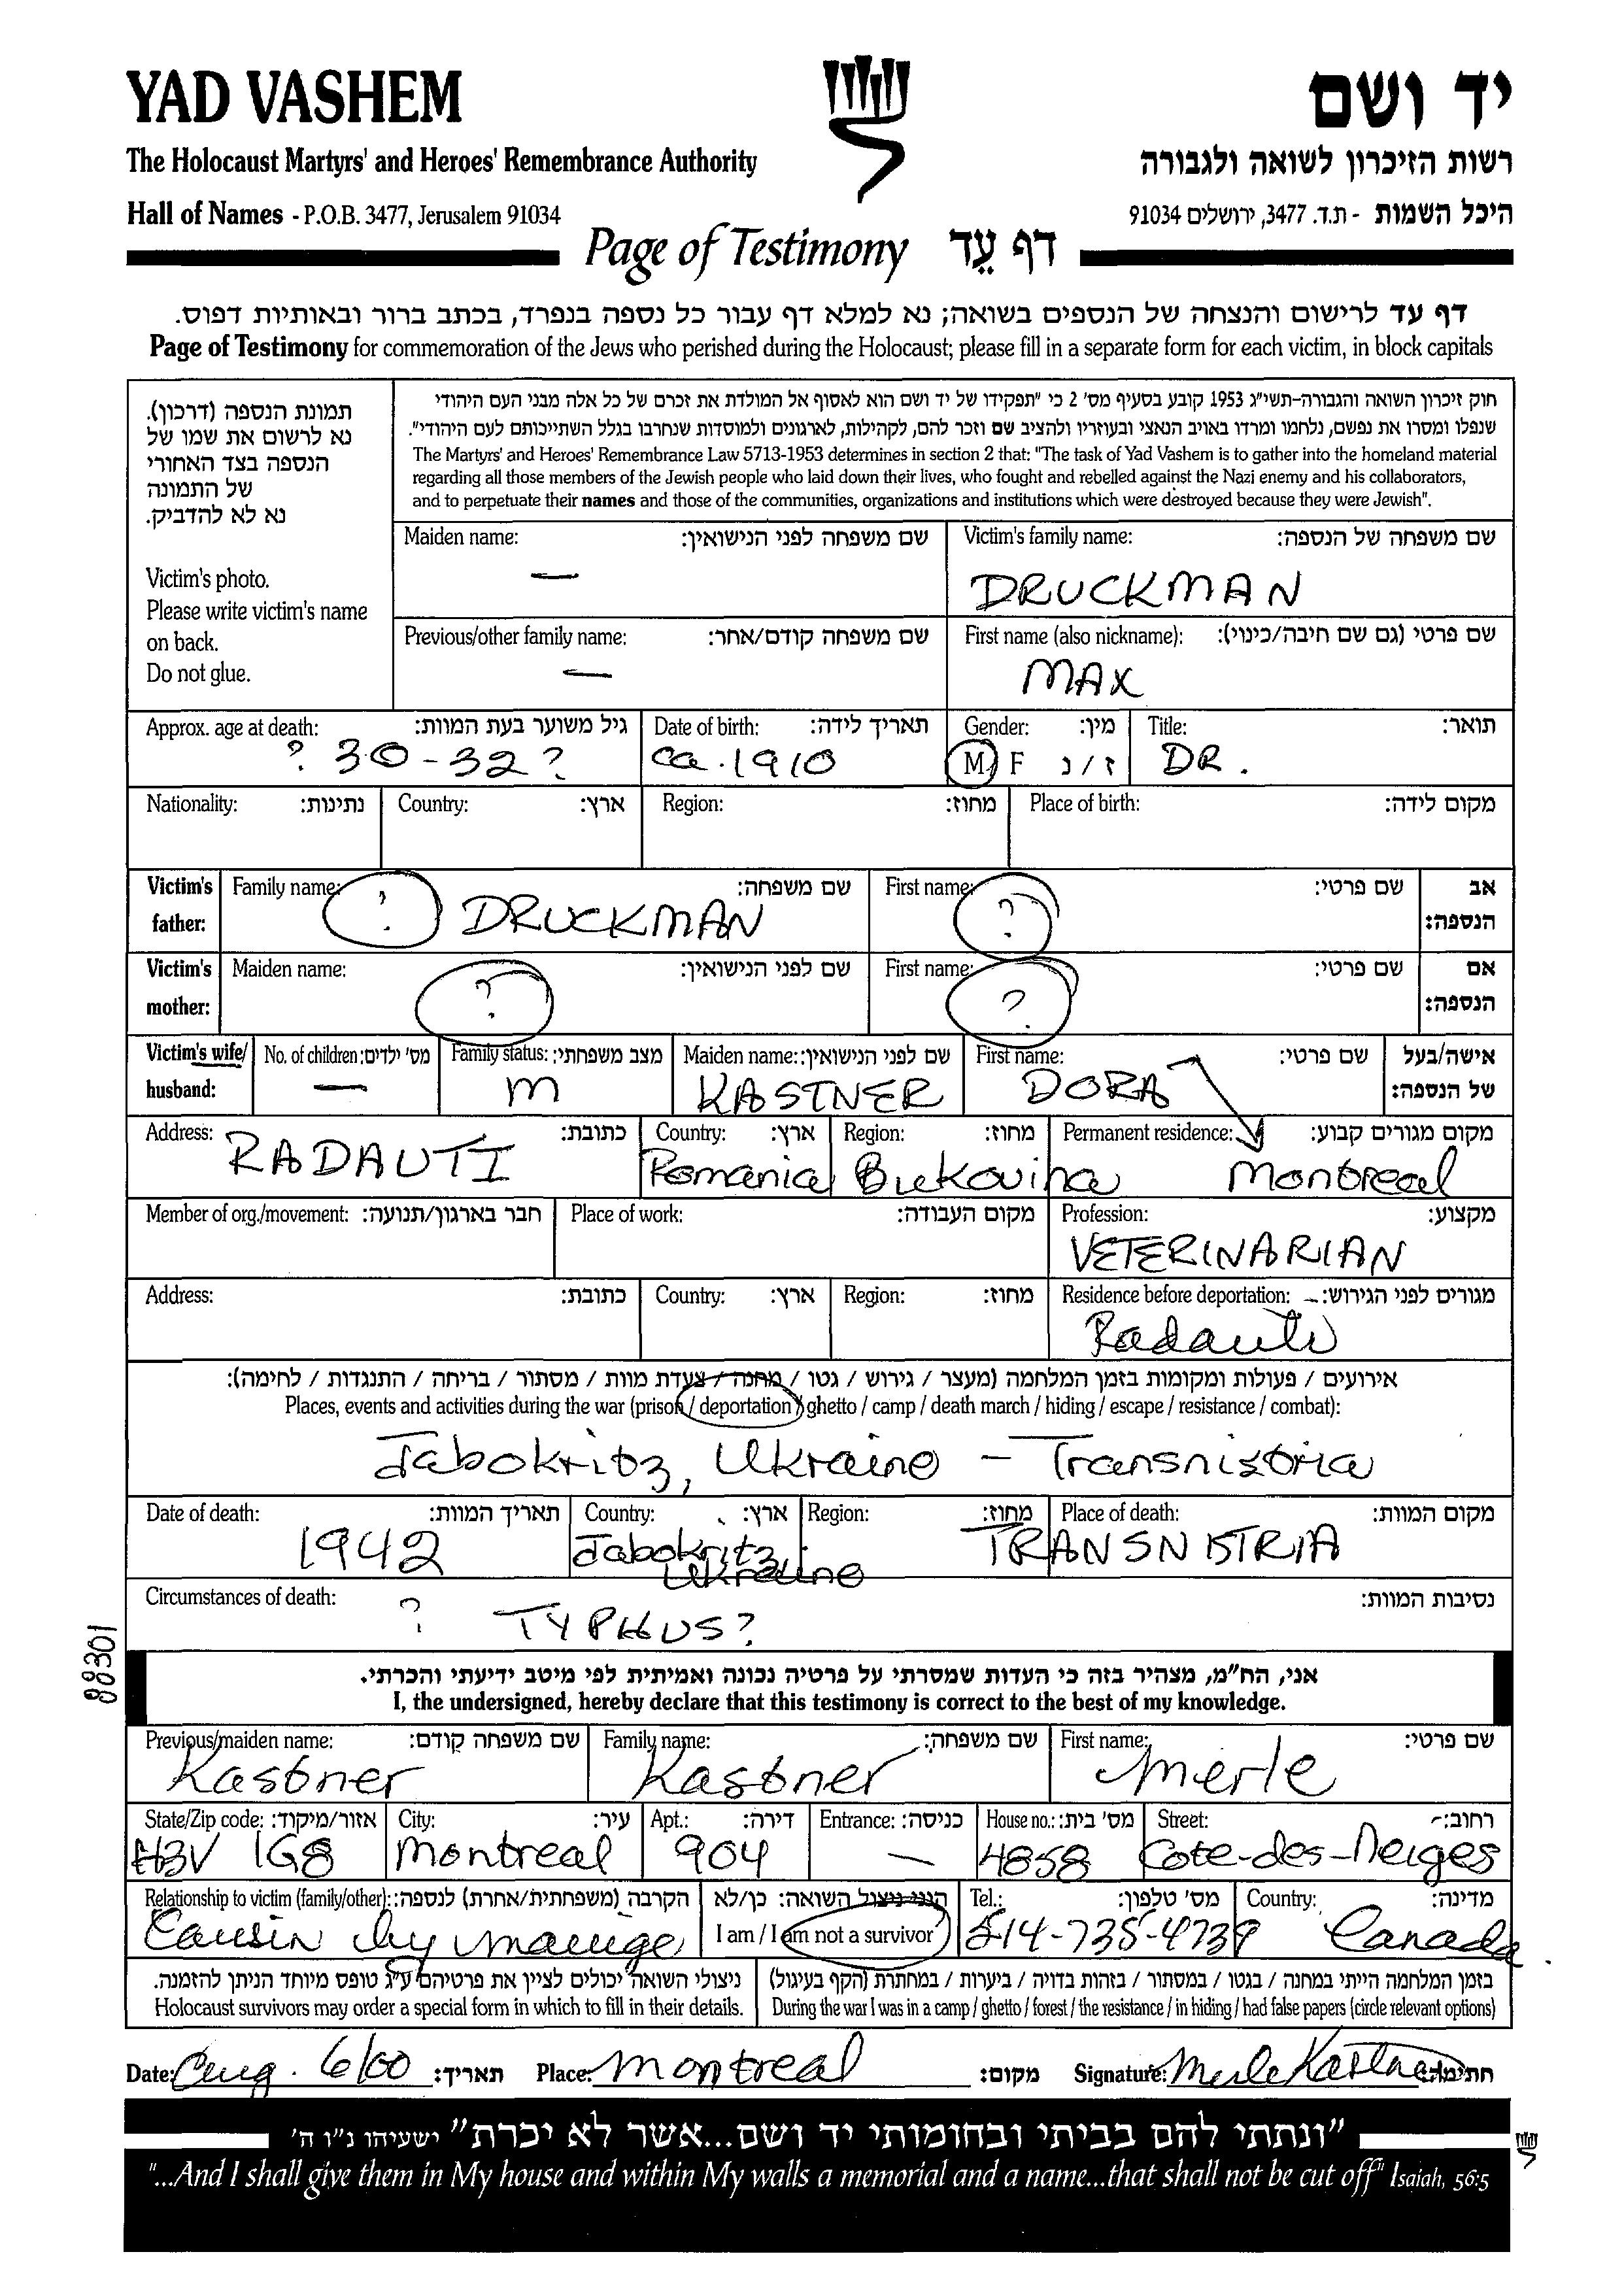 YAD VASHEM
יד ושם
The Holocaust Martyrs' and Heroes' Remembrance Authority
רשות הזיכרון לשואה ולגבורה
Hall of Names - P.O.B. 3477, Jerusalem 91034
היכל השמות - ת.ד. 3477, ירושלים 91034
Page of Testimony דף עֵד
דף עד לרישום והנצחה של הנספים בשואה; נא למלא דף עבור כל נספה בנפרד, בכתב ברור ובאותיות דפוס.
Page of Testimony for commemoration of the Jews who perished during the Holocaust; please fill in a separate form for each victim, in block capitals
תמונת הנספה (דרכון).
נא לרשום את שמו של
הנספה בצד האחורי
של התמונה
נא לא להדביק.
Victim's photo.
Please write victim's name
on back.
Do not glue.
חוק זיכרון השואה והגבורה-תשי"ג 1953 קובע בסעיף מס' 2 כי "תפקידו של יד ושם הוא לאסוף אל המולדת את זכרם של כל אלה מבני העם היהודי
שנפלו ומסרו את נפשם, נלחמו ומרדו באויב הנאצי ובעוזריו ולהציב שם וזכר להם, לקהילות, לארגונים ולמוסדות שנחרבו בגלל השתייכותם לעם היהודי".
The Martyrs' and Heroes' Remembrance Law 5713-1953 determines in section 2 that: "The task of Yad Vashem is to gather into the homeland material
regarding all those members of the Jewish people who laid down their lives, who fought and rebelled against the Nazi enemy and his collaborators,
and to perpetuate their names and those of the communities, organizations and institutions which were destroyed because they were Jewish".
Maiden name: שם משפחה לפני הנישואין: Victim's family name: שם משפחה של הנספה:
— DRUCKMAN
Previous/other family name: שם משפחה קודם/אחר: First name (also nickname): שם פרטי (גם שם חיבה/כינוי):
— MAX
Approx. age at death: גיל משוער בעת המוות: Date of birth: תאריך לידה: Gender: מין: Title: תואר:
? 30-32? ca. 1910 M F ז / נ DR.
Nationality: נתינות: Country: ארץ: Region: מחוז: Place of birth: מקום לידה:
Victim's father: Family name: שם משפחה: First name: שם פרטי: אב הנספה:
? DRUCKMAN ?
Victim's mother: Maiden name: שם לפני הנישואין: First name: שם פרטי: אם הנספה:
? ?
Victim's wife/ husband: No. of children: מס' ילדים: Family status: מצב משפחתי: Maiden name: שם לפני הנישואין: First name: שם פרטי: אישה/בעל של הנספה:
— m KASTNER DORA
Address: כתובת: Country: ארץ: Region: מחוז: Permanent residence: מקום מגורים קבוע:
RADAUTI Romania Bukovina Montreal
Member of org./movement: חבר בארגון/תנועה: Place of work: מקום העבודה: Profession: מקצוע:
VETERINARIAN
Address: כתובת: Country: ארץ: Region: מחוז: Residence before deportation: מגורים לפני הגירוש:
Radauti
אירועים / פעולות ומקומות בזמן המלחמה (מעצר / גירוש / גטו / מחנה / צעדת מוות / מסתור / בריחה / התנגדות / לחימה):
Places, events and activities during the war (prison / deportation / ghetto / camp / death march / hiding / escape / resistance / combat):
Jabokritz, Ukraine - Transnistria
Date of death: תאריך המוות: Country: ארץ: Region: מחוז: Place of death: מקום המוות:
1942 Jabokritz Ukraine TRANSNISTRIA
Circumstances of death: נסיבות המוות:
? TYPHUS?
88301
אני, הח"מ, מצהיר בזה כי העדות שמסרתי על פרטיה נכונה ואמיתית לפי מיטב ידיעתי והכרתי.
I, the undersigned, hereby declare that this testimony is correct to the best of my knowledge.
Previous/maiden name: שם משפחה קודם: Family name: שם משפחה: First name: שם פרטי:
Kastner Kastner Merle
State/Zip code: אזור/מיקוד: City: עיר: Apt.: דירה: Entrance: כניסה: House no.: מס' בית: Street: רחוב:
H3V 1G8 Montreal 904 — 4858 Cote-des-Neiges
Relationship to victim (family/other): הקרבה (משפחתית/אחרת) לנספה: הנני ניצול השואה: כן/לא Tel.: מס' טלפון: Country: מדינה:
Cousin by marriage I am / I am not a survivor 514-735-4739 Canada
ניצולי השואה יכולים לציין את פרטיהם ע"ג טופס מיוחד הניתן להזמנה. בזמן המלחמה הייתי במחנה / בגטו / במסתור / בזהות בדויה / ביערות / במחתרת (הקף בעיגול)
Holocaust survivors may order a special form in which to fill in their details. During the war I was in a camp / ghetto / forest / the resistance / in hiding / had false papers (circle relevant options)
Date: Aug. 6/00 תאריך: Place: Montreal מקום: Signature: Merle Kastner חתימה:
"ונתתי להם בביתי ובחומותי יד ושם...אשר לא יכרת" ישעיהו נ"ו ה'
"...And I shall give them in My house and within My walls a memorial and a name...that shall not be cut off" Isaiah, 56:5